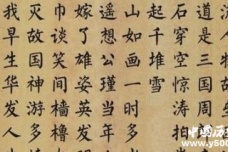 道是三国周
石穿空惊涛拍
起千堆雪
山如画一时多
遥想公瑾当年
嫁了雄姿英发
巾谈笑间樯橹
灭故国神游多
我早生华发人